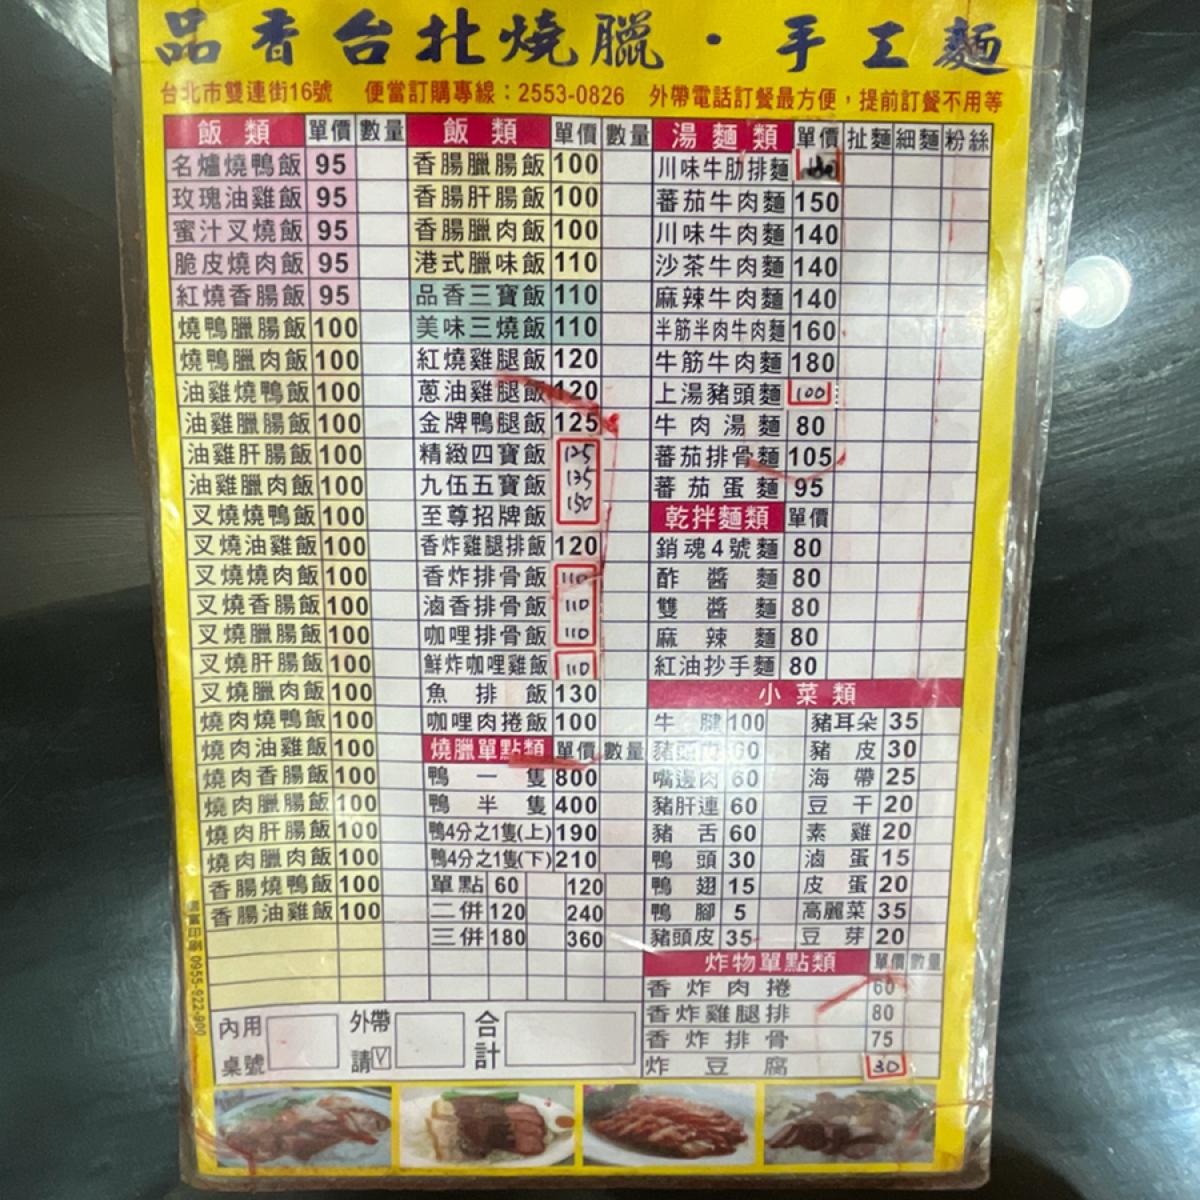 品香台北燒臘・手工麵
台北市雙連街16號 便當訂購專線：2553-0826 外帶電話訂餐最方便，提前訂餐不用等
飯類 單價 數量
名爐燒鴨飯 95
玫瑰油雞飯 95
蜜汁叉燒飯 95
脆皮燒肉飯 95
紅燒香腸飯 95
燒鴨臘腸飯 100
燒鴨臘肉飯 100
油雞燒鴨飯 100
油雞臘腸飯 100
油雞肝腸飯 100
油雞臘肉飯 100
叉燒燒鴨飯 100
叉燒油雞飯 100
叉燒燒肉飯 100
叉燒香腸飯 100
叉燒臘腸飯 100
叉燒肝腸飯 100
叉燒臘肉飯 100
燒肉燒鴨飯 100
燒肉油雞飯 100
燒肉香腸飯 100
燒肉臘腸飯 100
燒肉肝腸飯 100
燒肉臘肉飯 100
香腸燒鴨飯 100
香腸油雞飯 100
飯類 單價 數量
香腸臘腸飯 100
香腸肝腸飯 100
香腸臘肉飯 100
港式臘味飯 110
品香三寶飯 110
美味三燒飯 110
紅燒雞腿飯 120
蔥油雞腿飯 120
金牌鴨腿飯 125
精緻四寶飯 125
九伍五寶飯 135
至尊招牌飯 150
香炸雞腿排飯 120
香炸排骨飯 110
滷香排骨飯 110
咖哩排骨飯 110
鮮炸咖哩雞飯 110
魚排飯 130
咖哩肉捲飯 100
燒臘單點類 單價 數量
鴨一隻 800
鴨半隻 400
鴨4分之1隻(上) 190
鴨4分之1隻(下) 210
單點 60 120
二併 120 240
三併 180 360
湯麵類 單價 扯麵 細麵 粉絲
川味牛肋排麵
蕃茄牛肉麵 150
川味牛肉麵 140
沙茶牛肉麵 140
麻辣牛肉麵 140
半筋半肉牛肉麵 160
牛筋牛肉麵 180
上湯豬頭麵 100
牛肉湯麵 80
蕃茄排骨麵 105
蕃茄蛋麵 95
乾拌麵類 單價
銷魂4號麵 80
酢醬麵 80
雙醬麵 80
麻辣麵 80
紅油抄手麵 80
小菜類
牛腱 100 豬耳朵 35
豬頭肉 60 豬皮 30
嘴邊肉 60 海帶 25
豬肝連 60 豆干 20
豬舌 60 素雞 20
鴨頭 30 滷蛋 15
鴨翅 15 皮蛋 20
鴨腳 5 高麗菜 35
豬頭皮 35 豆芽 20
炸物單點類 單價 數量
香炸肉捲 60
香炸雞腿排 80
香炸排骨 75
炸豆腐 30
內用 外帶 合
桌號 請V 計
0955-922-900